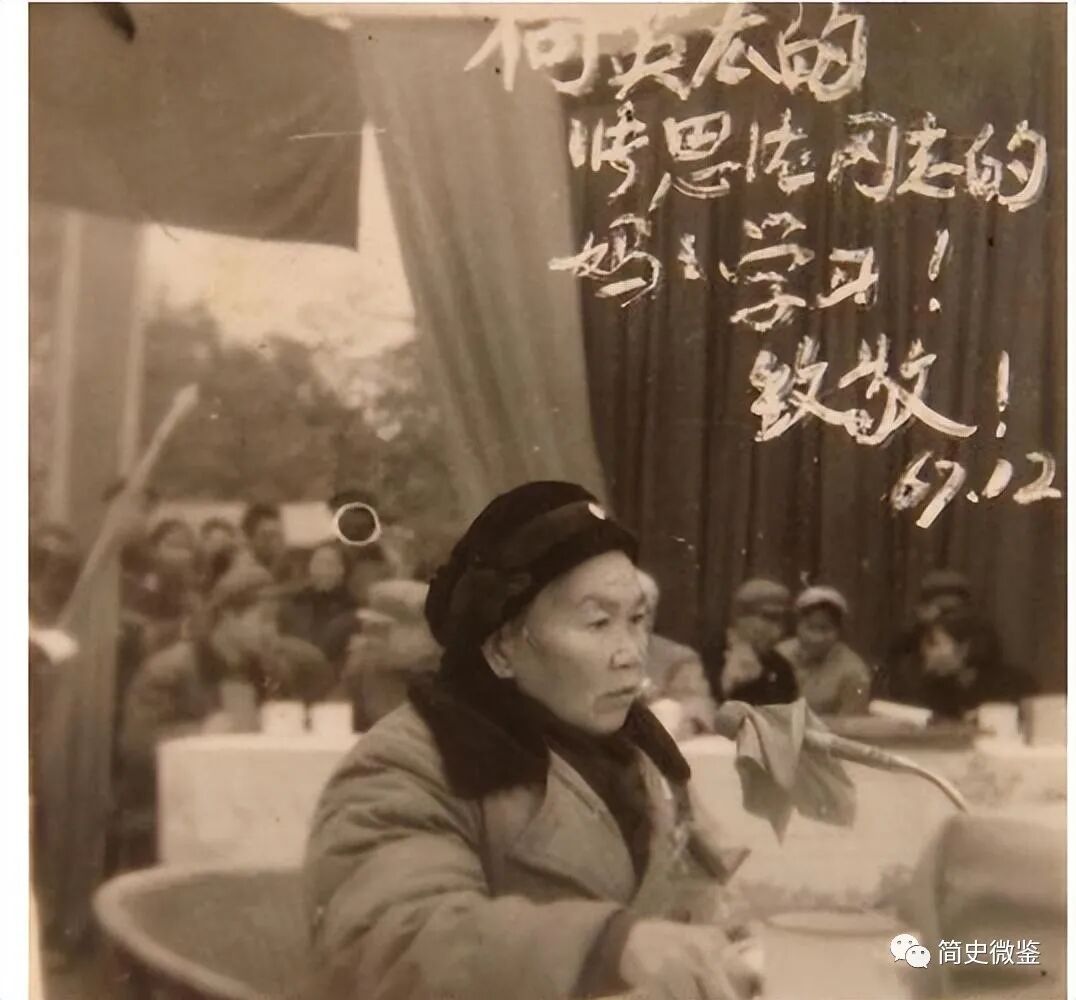 向英雄的
张思德同志的
妈妈学习!
致敬!
67.12
简史微鉴